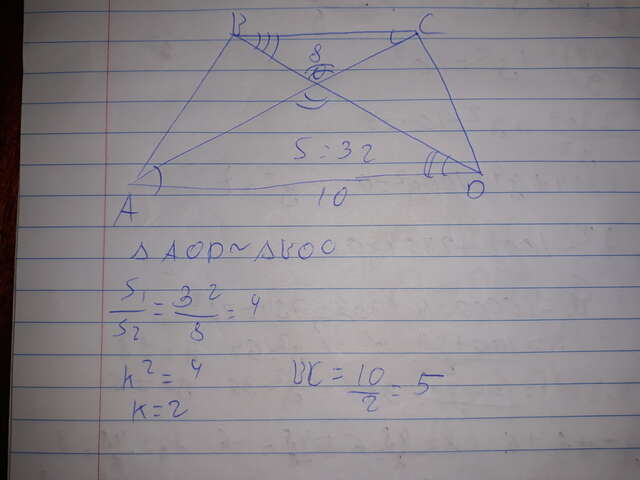 B C
8
O
S=32
A 10 D
Δ AOD ~ Δ BOC
S1/S2 = 32/8 = 4
k² = 4
k = 2
BC = 10/2 = 5